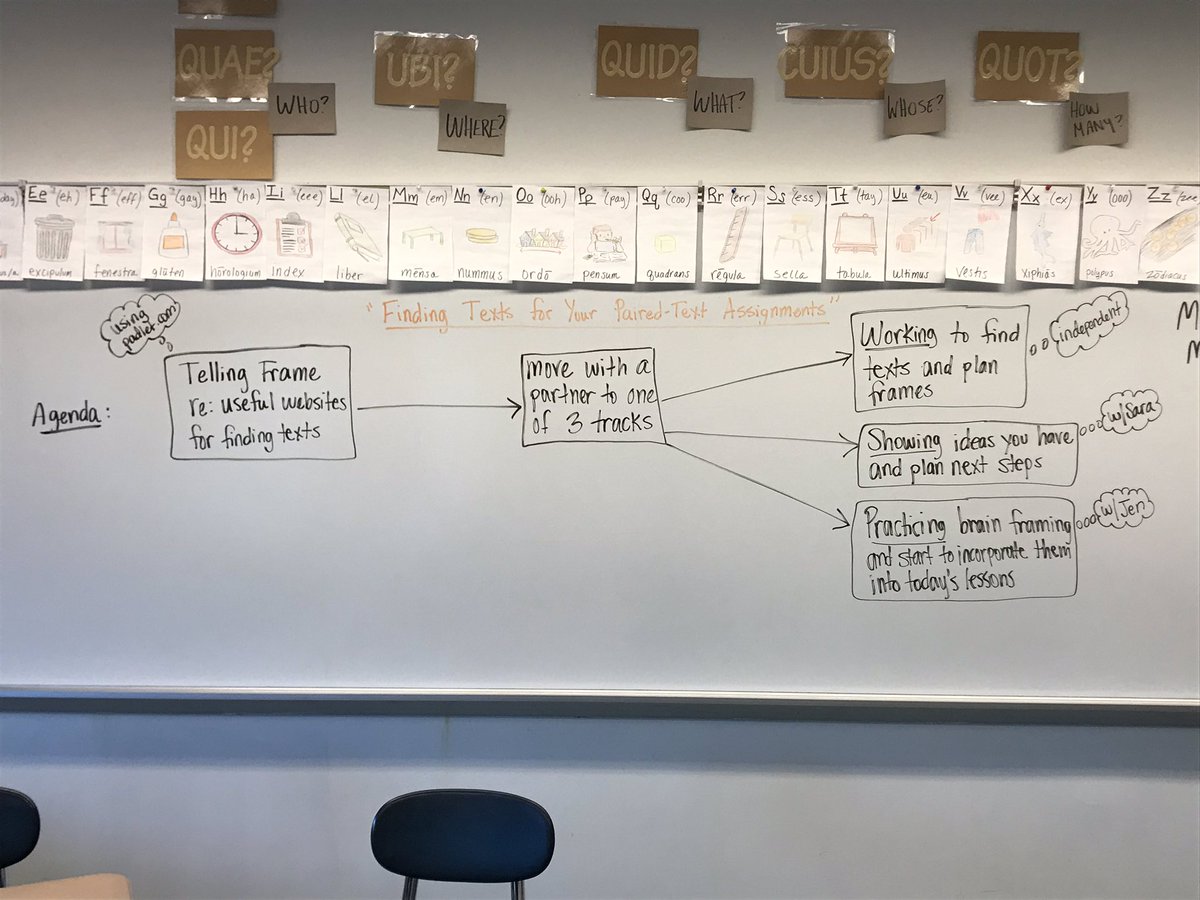 QUAE?
QUI?
WHO?
UBI?
WHERE?
QUID?
WHAT?
CUIUS?
WHOSE?
QUOT?
HOW
MANY?
Ee (eh)
excipulum
Ff (eff)
fenestra
Gg (gay)
glūten
Hh (ha)
hōrologium
Ii (eee)
index
Ll (el)
liber
Mm (em)
mēnsa
Nn (en)
nummus
Oo (ooh)
ordō
Pp (pay)
pensum
Qq (coo)
quadrans
Rr (err)
rēgula
Ss (ess)
sella
Tt (tay)
tabula
Uu (eu)
ultimus
Vv (vee)
vestis
Xx (ex)
xiphiās
Yy (ooo)
polypus
Zz (zee
zōdiacus
"Finding Texts for Your Paired-Text Assignments"
Agenda:
using
padlet.com
Telling Frame
re: useful websites
for finding texts
move with a
partner to one
of 3 tracks
Working to find
texts and plan
frames
independent
Showing ideas you have
and plan next steps
w/Sara
Practicing brain framing
and start to incorporate them
into today's lessons
w/Jen
M
M